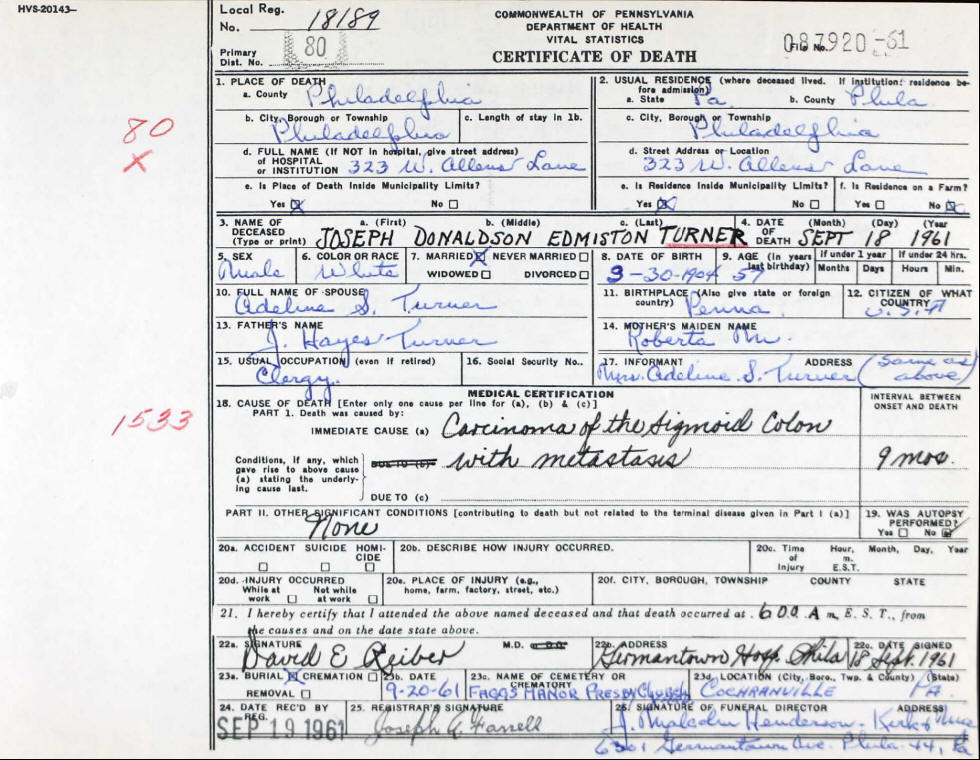 HVS-20143—
Local Reg. No. 18189
COMMONWEALTH OF PENNSYLVANIA
DEPARTMENT OF HEALTH
VITAL STATISTICS
CERTIFICATE OF DEATH
Primary Dist. No. 80
File No. 087920-61
80
X
1. PLACE OF DEATH
a. County Philadelphia
b. City, Borough or Township Philadelphia
c. Length of stay in 1b.
d. FULL NAME (If NOT in hospital, give street address) of HOSPITAL or INSTITUTION 323 W. Allens Lane
e. Is Place of Death Inside Municipality Limits?
Yes ☒ No ☐
2. USUAL RESIDENCE (where deceased lived. If institution: residence before admission)
a. State Pa. b. County Phila
c. City, Borough or Township Philadelphia
d. Street Address or Location 323 W. Allens Lane
e. Is Residence Inside Municipality Limits? f. Is Residence on a Farm?
Yes ☒ No ☐ Yes ☐ No ☒
3. NAME OF DECEASED (Type or print) a. (First) b. (Middle) c. (Last)
JOSEPH DONALDSON EDMISTON TURNER
4. DATE OF DEATH (Month) (Day) (Year) SEPT 18 1961
5. SEX Male
6. COLOR OR RACE White
7. MARRIED ☒ NEVER MARRIED ☐
WIDOWED ☐ DIVORCED ☐
8. DATE OF BIRTH 3-30-1904
9. AGE (in years last birthday) 57 If under 1 year Months Days If under 24 hrs. Hours Min.
10. FULL NAME OF SPOUSE Adeline S. Turner
11. BIRTHPLACE (Also give state or foreign country) Penna.
12. CITIZEN OF WHAT COUNTRY U.S.A
13. FATHER'S NAME J. Hayes Turner
14. MOTHER'S MAIDEN NAME Roberta
15. USUAL OCCUPATION (even if retired) Clergy.
16. Social Security No..
17. INFORMANT ADDRESS Mrs. Adeline S. Turner (same as above)
1533
MEDICAL CERTIFICATION
18. CAUSE OF DEATH [Enter only one cause per line for (a), (b) & (c)]
INTERVAL BETWEEN ONSET AND DEATH
PART 1. Death was caused by:
IMMEDIATE CAUSE (a) Carcinoma of the Sigmoid Colon
Conditions, if any, which gave rise to above cause (a) stating the underlying cause last.
DUE TO (b) with metastasis 9 mos.
DUE TO (c)
PART II. OTHER SIGNIFICANT CONDITIONS [contributing to death but not related to the terminal disease given in Part I (a)]
None
19. WAS AUTOPSY PERFORMED?
Yes ☐ No ☒
20a. ACCIDENT SUICIDE HOMICIDE
☐ ☐ ☐
20b. DESCRIBE HOW INJURY OCCURRED.
20c. Time of Injury Hour, m. E.S.T. Month, Day, Year
20d. INJURY OCCURRED
While at work ☐ Not while at work ☐
20e. PLACE OF INJURY (e.g., home, farm, factory, street, etc.)
20f. CITY, BOROUGH, TOWNSHIP COUNTY STATE
21. I hereby certify that I attended the above named deceased and that death occurred at 6 00 A m, E. S. T., from
the causes and on the date state above.
22a. SIGNATURE David E Reiber M.D.
22b. ADDRESS Germantown Hosp. Phila
22c. DATE SIGNED 18 Sept. 1961
23a. BURIAL ☒ CREMATION ☐
REMOVAL ☐
23b. DATE 9-20-61
23c. NAME OF CEMETERY OR CREMATORY FAGGS MANOR PRESBY CHURCH
23d. LOCATION (City, Boro., Twp. & County) (State) COCHRANVILLE PA.
24. DATE REC'D BY REG. SEP 19 1961
25. REGISTRAR'S SIGNATURE Joseph A. Farrell
26. SIGNATURE OF FUNERAL DIRECTOR ADDRESS
J. Malcolm Henderson - Kirk &
6301 Germantown Ave. Phila-44, Pa